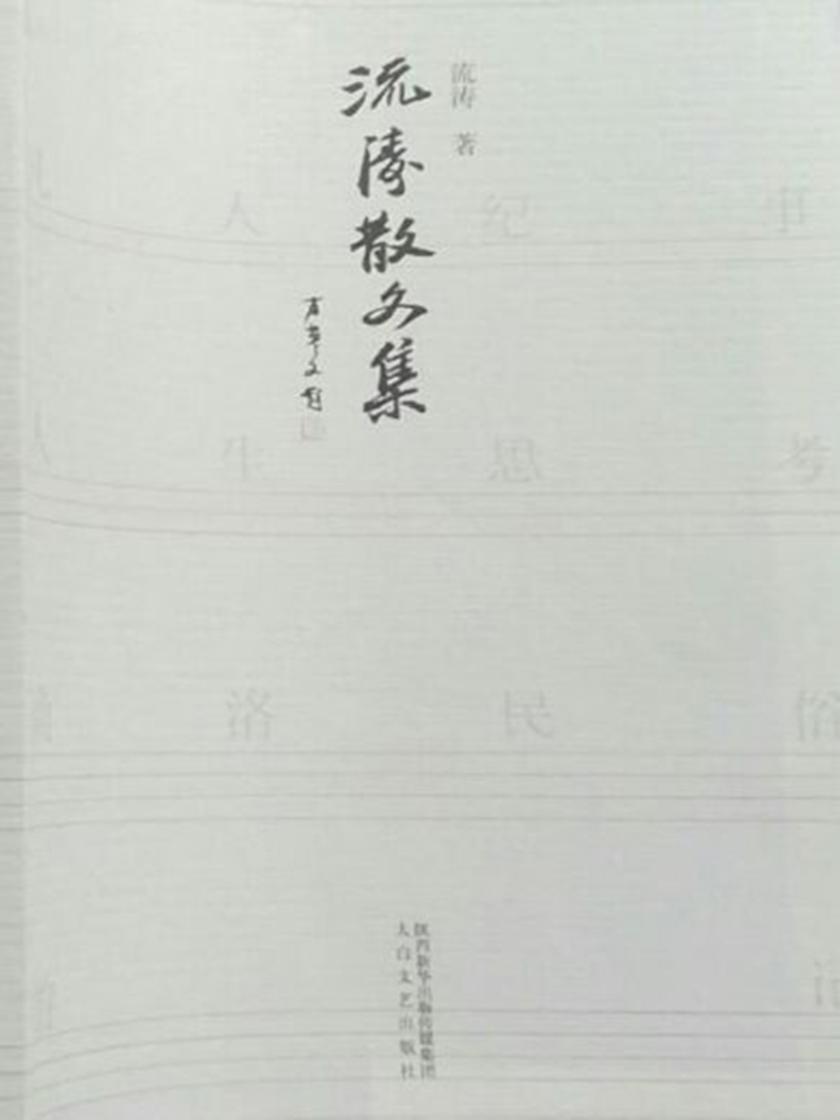 流涛 著
流涛散文集
人 纪 事
人生思考
洛民俗
陕西新华出版传媒集团
太白文艺出版社